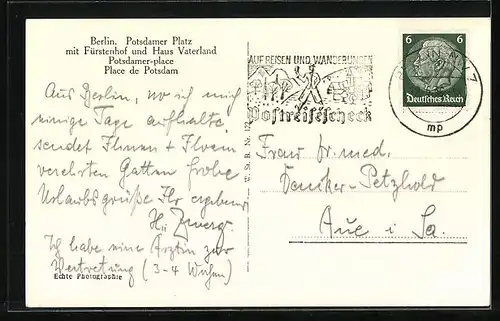 Berlin. Potsdamer Platz
mit Fürstenhof und Haus Vaterland
Potsdamer-place
Place de Potsdam
Aus Berlin, wo ich mich
einige Tage aufhalte,
sendet Ihnen + Ihrem
verehrten Gatten frohe
Urlaubsgrüße Ihr ergebener
Zwerg.
Ich habe eine Ärztin zur
Vertretung (3-4 Wochen)
Echte Photographie
St. B. Nr.
AUF REISEN UND WANDERUNGEN
Postreisescheck
6 6
Deutsches Reich
mp
Frau Dr. med.
Petzhold
Aue i Sa.